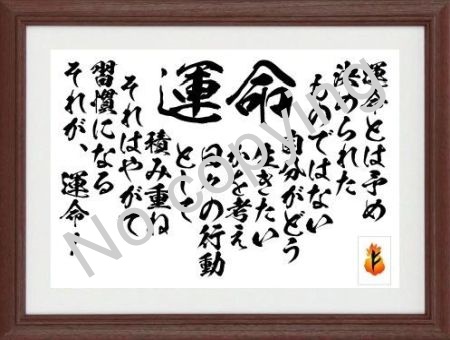 運命
運命とは予め
決められた
ものではない
自分がどう
生きたい
かを考え
日々の行動
として
積み重ね
それはやがて
習慣になる
それが、運命…
No copying